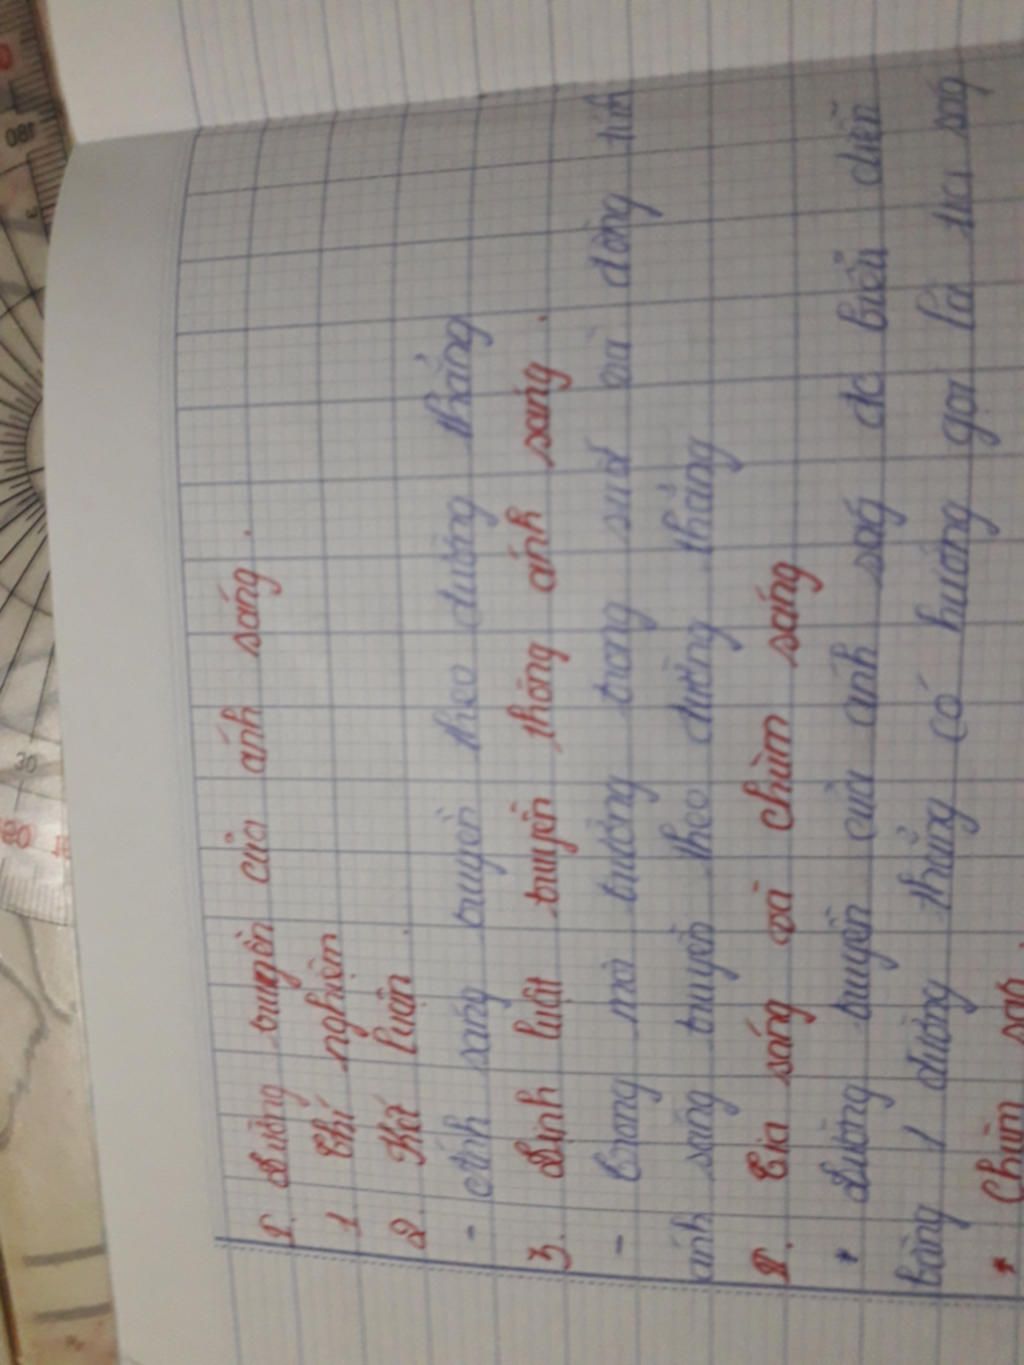 I. Đường truyền của ánh sáng.
1 Thí nghiệm
2 Kết luận.
- Ánh sáng truyền theo đường thẳng
3. Định luật truyền thông ánh sáng.
- Trong môi trường trong suốt và đồng tính
ánh sáng truyền theo đường thẳng
II. Tia sáng và chùm sáng
* Đường truyền của ánh ság đc biểu diễn
bằng 1 đường thẳng có hướng gọi là tia ság
* Chùm ság.
180
30